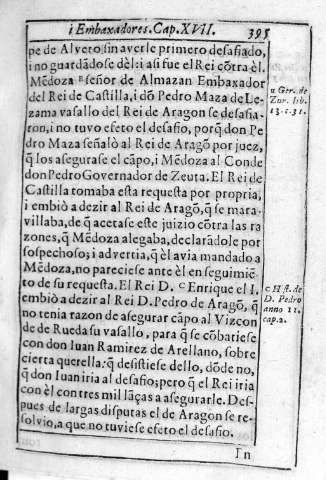 i Embaxadores. Cap. XVII. 395
pe de Alvero sin averle primero desafiado,
i no guardãdose dèl: i asi fue el Rei cõtra èl.
Mẽdoza u señor de Almazan Embaxador
del Rei de Castilla, i dõ Pedro Maza de Le-
zama vasallo del Rei de Aragon se desafia-
ron, i no tuvo efeto el desafio, porq̃ don Pe
dro Maza señalò al Rei de Aragõ por juez,
q̃ los asegurase el cãpo, i Mẽdoza al Conde
don Pedro Governador de Zeuta. El Rei de
Castilla tomaba esta requesta por propria,
i embiò a dezir al Rei de Aragõ, q̃ se mara-
villaba, de q̃ acetase este juizio cõtra las ra
zones, q̃ Mẽdoza alegaba, declarãdole por
sospechoso; i advertia, q̃ èl avia mandado a
Mẽdoza, no pareciese ante èl en seguimiẽ-
to de su requesta. El Rei D. c Enrique el I.
embiò a dezir al Rei D. Pedro de Aragõ, q̃
no tenia razon de asegurar cãpo al Vizcon
de de Rueda su vasallo, para q̃ se cõbatiese
con don Iuan Ramirez de Arellano, sobre
cierta querella: q̃ desistiese dello, dõde no,
q̃ don Iuan iria al desafio; pero q̃ el Rei iria
con èl con tres mil lãças a asegurarle. Des-
pues de largas disputas el de Aragon se re-
solvio, a que no tuviese efeto el desafio.
In
u Ger. de
Zur. lib.
13. c. 31.
c Hist. de
D. Pedro
anno 11.
cap. 2.